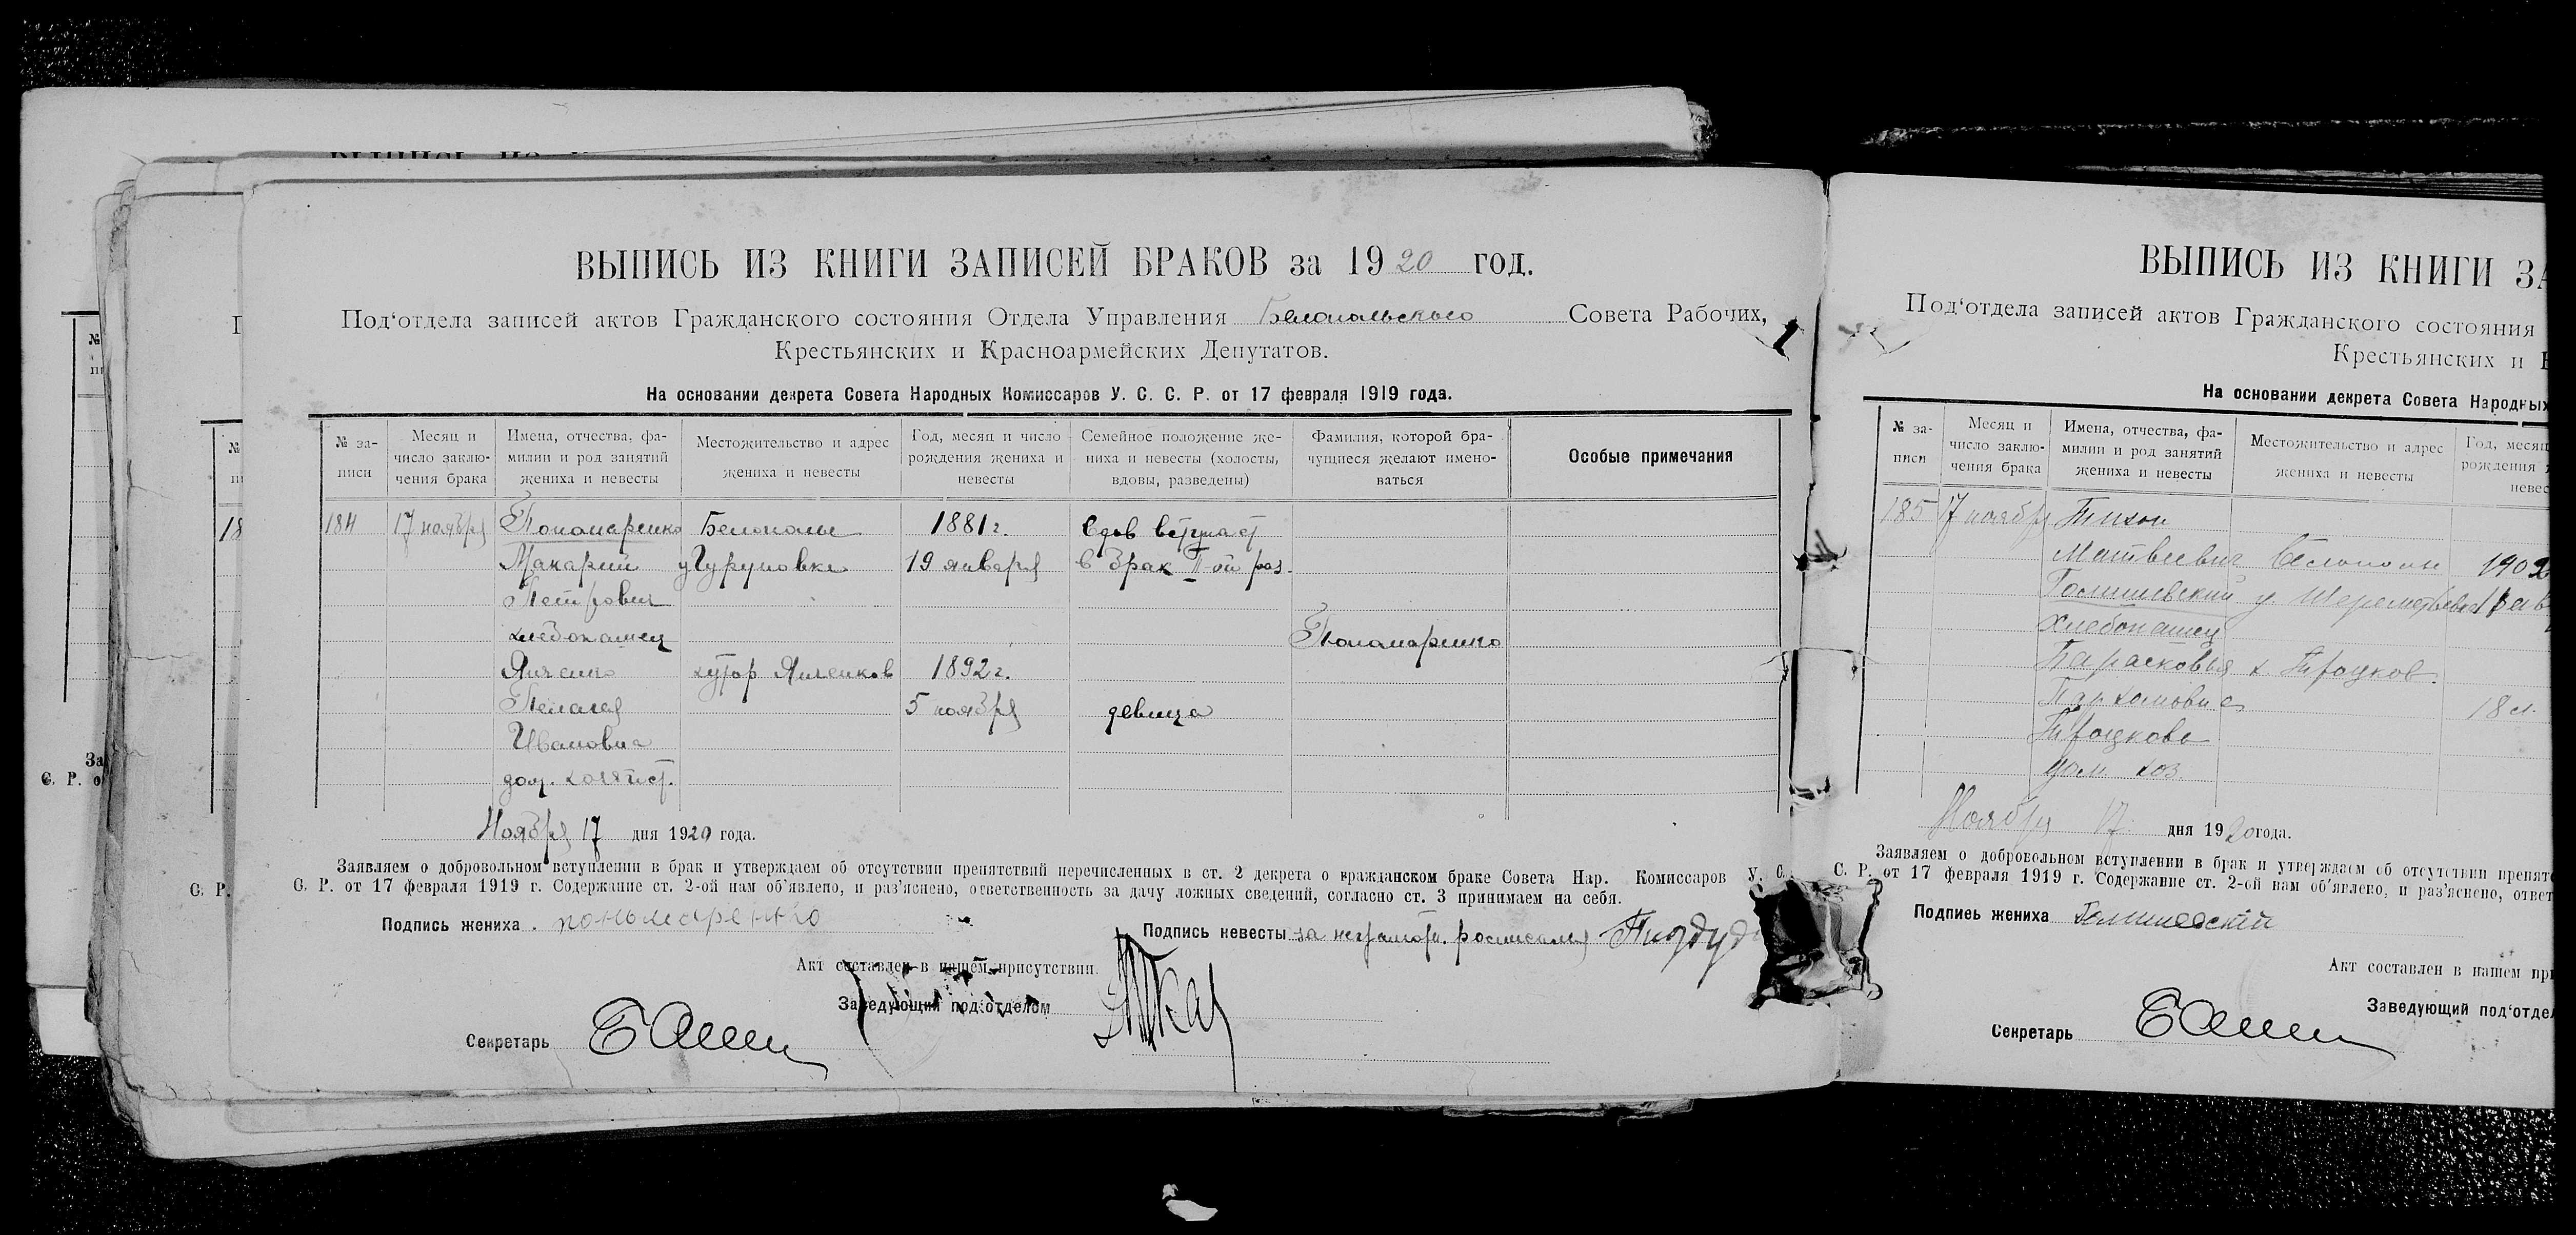 ВЫПИСЬ ИЗ КНИГИ ЗАПИСЕЙ БРАКОВ за 1920 год.
Под'отдела записей актов Гражданского состояния Отдела Управления Белопольского Совета Рабочих,
Крестьянских и Красноармейских Депутатов.
На основании декрета Совета Народных Комиссаров У. С. С. Р. от 17 февраля 1919 года.
№ за- Месяц и Имена, отчества, фа- Местожительство и адрес Год, месяц и число Семейное положение же- Фамилия, которой бра- Особые примечания
писи число заклю- милии и род занятий жениха и невесты рождения жениха и ниха и невесты (холосты, чущиеся желают имено-
чения брака жениха и невесты невесты вдовы, разведены) ваться
184 17 ноября Пономаренко Белополье 1881 г. вдов вступает
Макарий 19 января в брак II-ой раз.
Петрович
хлебопашец Пономаренко
Янченко хутор Янченков 1892 г.
Пелагея 5 ноября девица
Ивановна
Ноября 17 дня 1920 года.
Заявляем о добровольном вступлении в брак и утверждаем об отсутствии препятствий перечисленных в ст. 2 декрета о гражданском браке Совета Нар. Комиссаров У. С.
С. Р. от 17 февраля 1919 г. Содержание ст. 2-ой нам об'явлено, и раз'яснено, ответственность за дачу ложных сведений, согласно ст. 3 принимаем на себя.
Подпись жениха пономаренко Подпись невесты за неграмотн. росписался
Акт составлен в нашем присутствии.
Заведующий под'отделом
Секретарь
ВЫПИСЬ ИЗ КНИГИ ЗА
Под'отдела записей актов Гражданского состояния
Крестьянских и
На основании декрета Совета Народных
№ за- Месяц и Имена, отчества, фа- Местожительство и адрес Год, месяц
писи число заклю- милии и род занятий жениха и невесты рождения
чения брака жениха и невесты невес
185 17 ноября Тихон
Матвеевич Белополье 1902
хлебопашец
Парасковья х. Троцков.
Пархомовна 18 л.
Троцкова
дом. хоз.
Ноября 17 дня 1920 года.
Заявляем о добровольном вступлении в брак и утверждаем об отсутствии препятс
С. Р. от 17 февраля 1919 г. Содержание ст. 2-ой нам об'явлено, и раз'яснено, ответ
Подпись жениха
Акт составлен в нашем при
Заведующий под'отдел
Секретарь